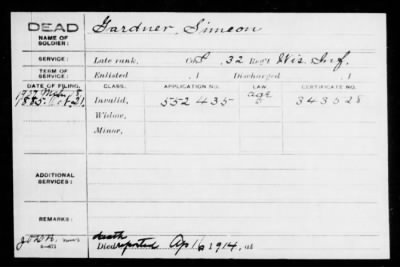 DEAD Gardner, Simeon
NAME OF SOLDIER:
SERVICE: Late rank, , 32 Reg't Wis. Inf.
TERM OF SERVICE: Enlisted , 1 Discharged , 1
DATE OF FILING. CLASS. APPLICATION NO. LAW. CERTIFICATE NO.
age
1885. Oct. 21 Invalid, 552435 343528
Widow,
Minor,
ADDITIONAL SERVICES:
REMARKS:
death
Died reported Ap 16, 1914, at